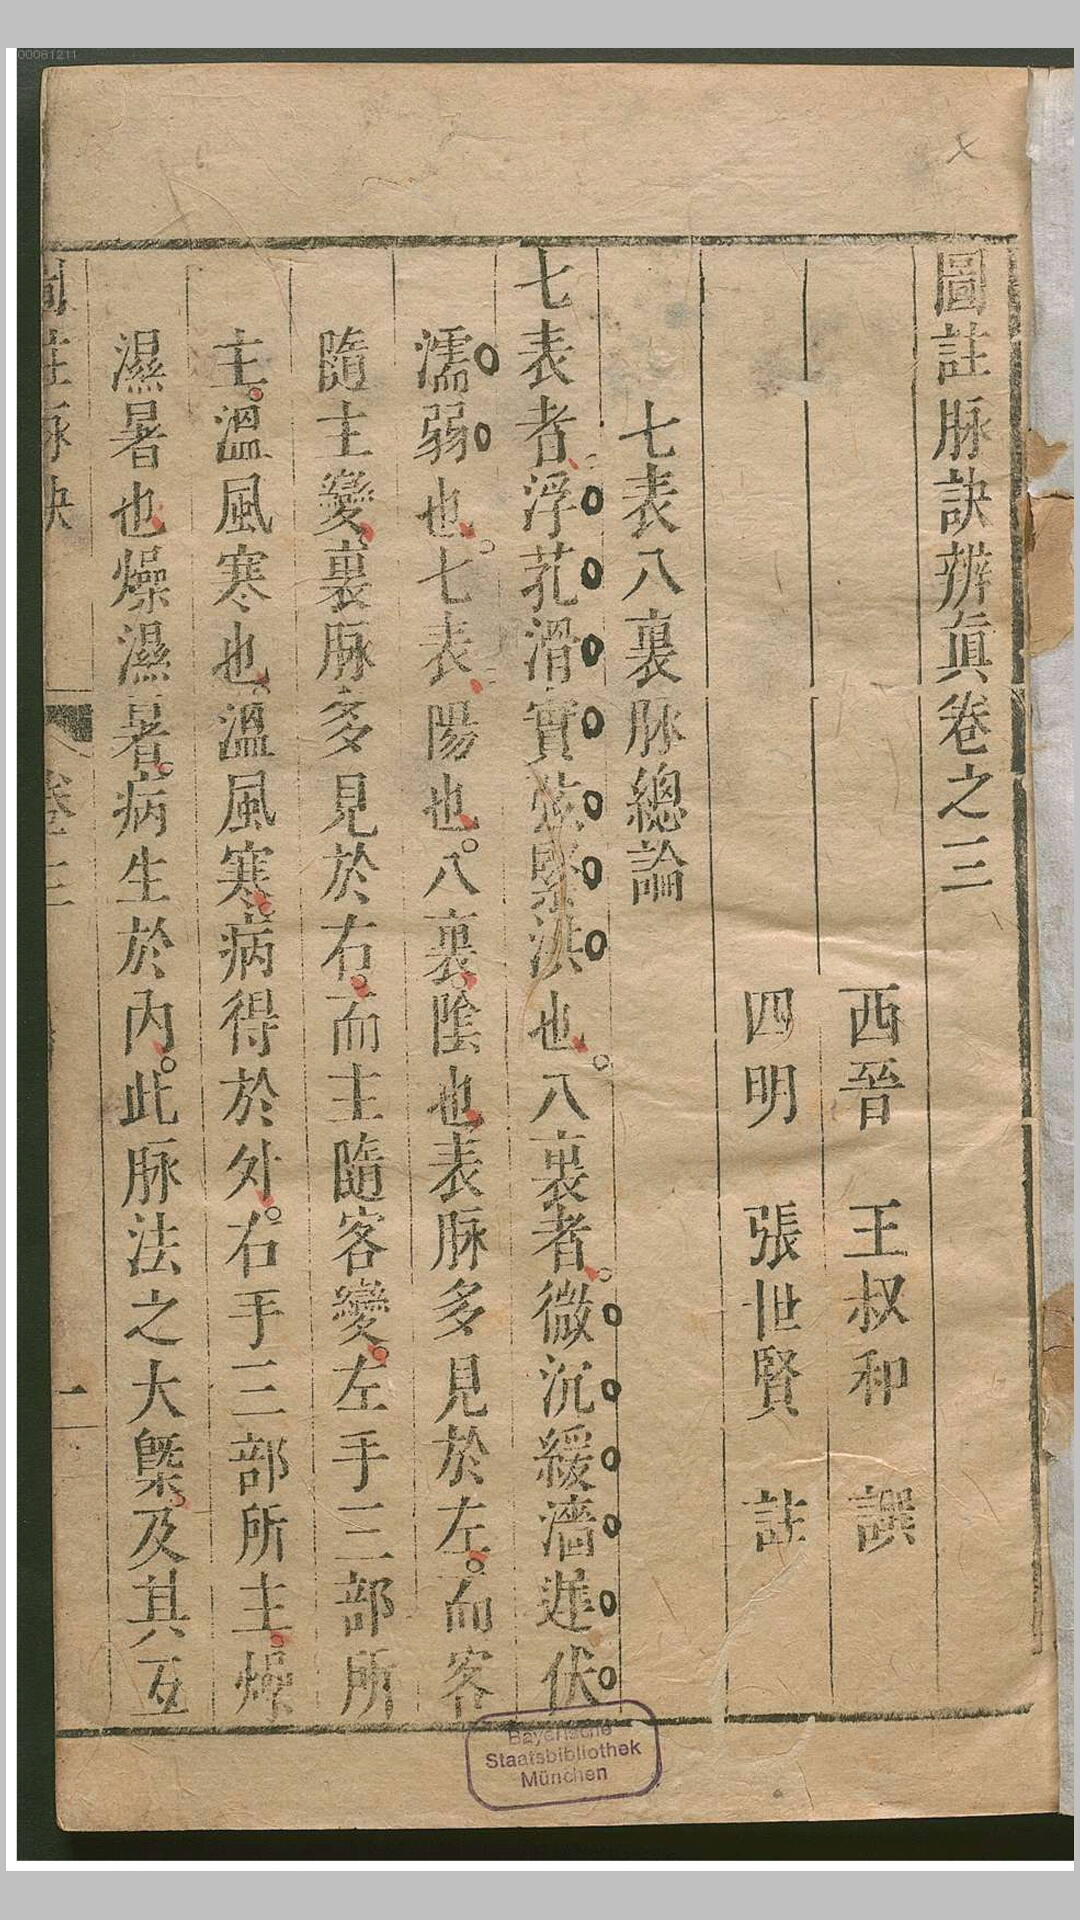 00081211
圖註脉訣辨眞卷之三
西晉 王叔和 譔
四明 張世賢 註
七表八裏脉總論
七表者浮芤滑實弦緊洪也。八裏者。微沉緩濇遲伏
濡弱也。七表陽也。八裏陰也表脉多見於左。而客
隨主變。裏脉多見於右。而主隨客變。左手三部所
主。溫風寒也。溫風寒。病得於外。右手三部所主。燥
濕暑也燥濕暑。病生於內。此脉法之大槩及其互
圖註脉訣 卷三 二
Bayerische
Staatsbibliothek
München